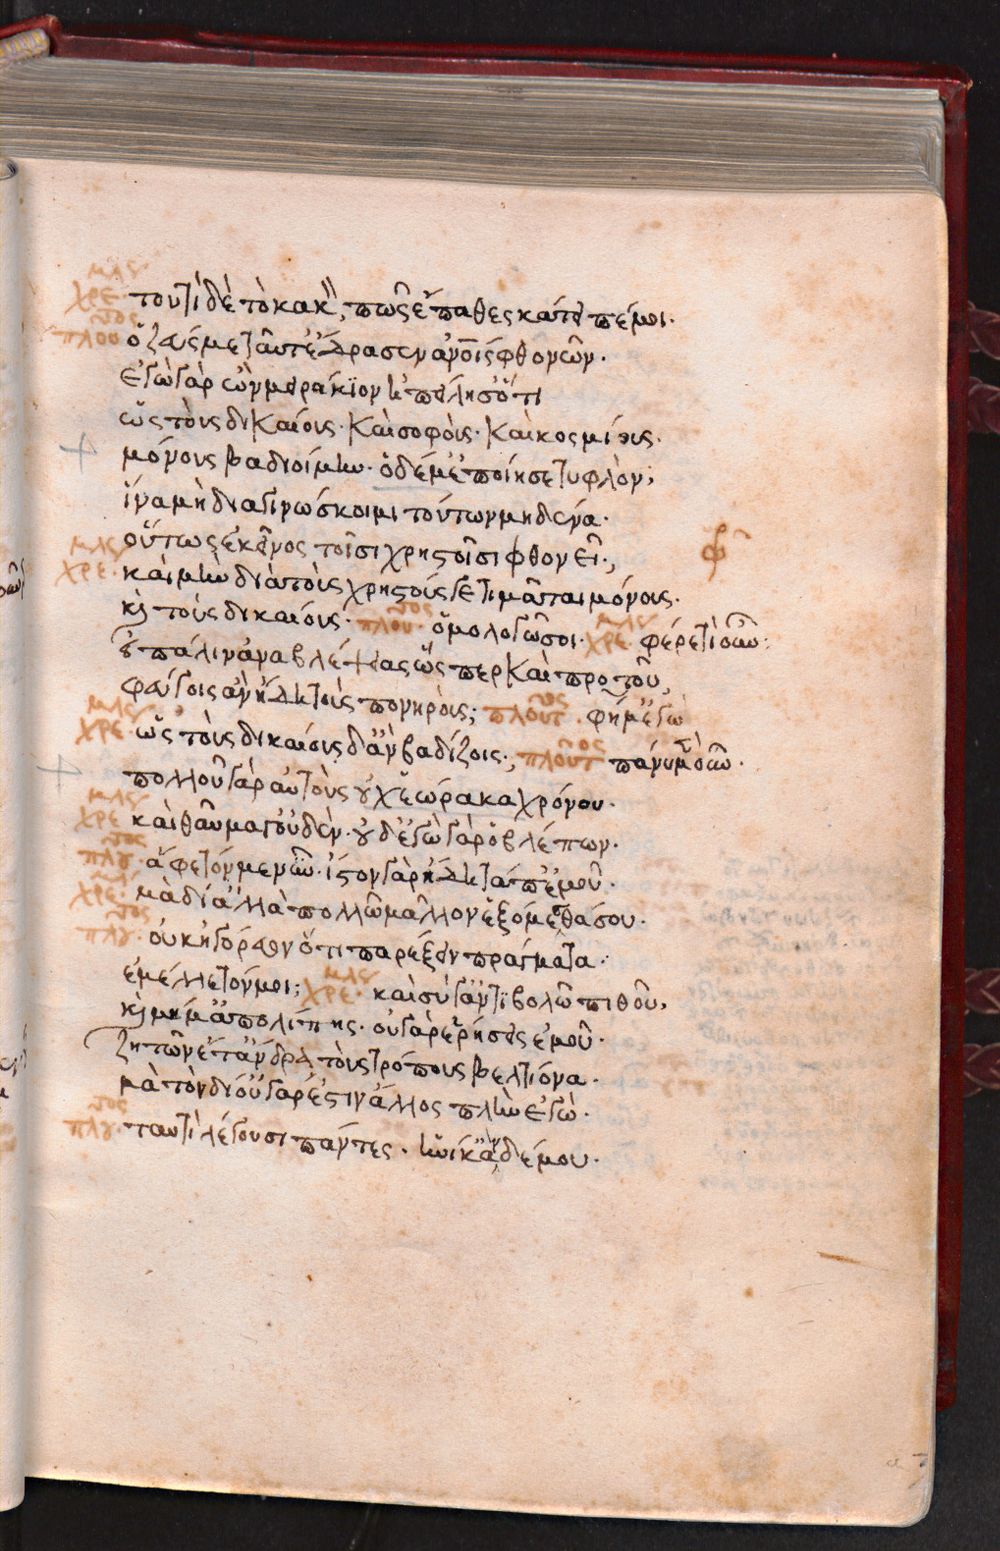 χρε μλ τουτὶ δὲ τὸ κακὸν, πῶς ἔπαθες κάτειπέ μοι.
πλου τος ὁ ζεύς με ταῦτ' ἔδρασεν ἀνοις φθονῶν.
ἐγὼ γὰρ ὢν μειράκϊον ἠπείλησ' ὅτι
ὡς τοὺς δικαίους. καὶ σοφοὺς. καὶ κοσμίους.
μόνους βαδιοίμην. ὁ δέ μ' ἐποίησε τυφλὸν,
ἵνα μὴ διαγιγνώσκοιμι τούτων μηδένα.
οὕτως ἐκεῖνος τοῖσι χρηστοῖσι φθονεῖ.,
χρε μλ καὶ μὴν διὰ τοὺς χρηστούς γε τιμᾶται μόνους.
κὶ τοὺς δικαίους. πλου τος ὁμολογῶ σοι. χρε μλ φέρε τί οὖν.
εἰ πάλιν ἀναβλέψειας ὥσπερ καὶ προτοῦ,
φεύγοις ἂν ἤδη τοὺς πονηρούς; πλουτ ος. φήμ' ἐγὼ
χρε μλ ὡς τοὺς δικαίους δ' ἂν βαδίζοις., πλουτ ος πάνυ μὲν οὖν.
πολλοῦ γὰρ αὐτοὺς οὐχ ἑώρακα χρόνου.
χρε μλ καὶ θαῦμά γ' οὐδὲν. οὐδ' ἐγὼ γὰρ ὁ βλέπων.
πλου τος. ἄφετόν με νῦν. ἴστον γὰρ ἤδη τἀπ' ἐμοῦ.
χρε μλ. μὰ δί' ἀλλὰ πολλῶ μᾶλλον ἑξόμεσθά σου.
πλου τος. οὐκ ἠγόρευον ὅτι παρέξειν πράγματα.
ἐμέλλετόν μοι; χρε μλ. καὶ σύ γ' ἀντιβολῶ πιθοῦ,
κὶ μή μ' ἀπολίπης. οὐ γὰρ εὑρήσεις ἐμοῦ.
ζητῶν ἔτ' ἄνδρα τοὺς τρόπους βελτίονα.
μὰ τὸν δί' οὐ γὰρ ἔστιν ἄλλος πλὴν ἐγὼ.
πλου τος. ταυτὶ λέγουσι πάντες. ἡνίκ' ἂν δέ μου.